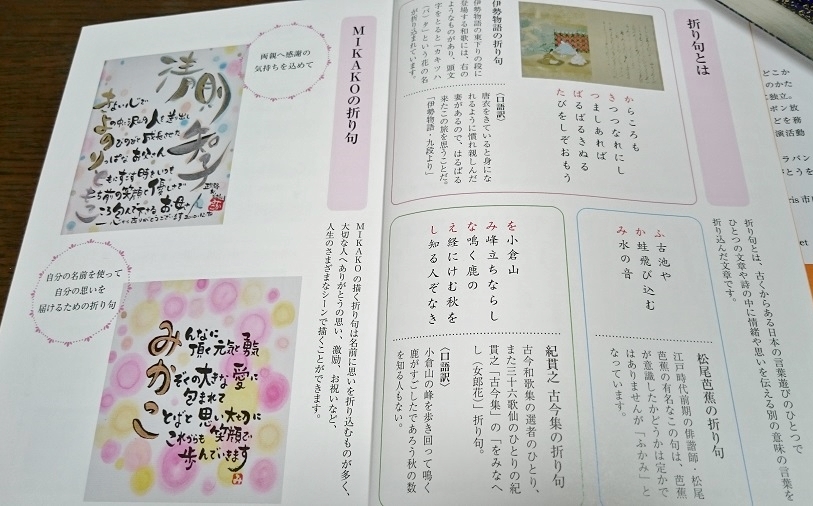 折り句とは
折り句とは、古くからある日本の言葉遊びのひとつで
ひとつの文章や詩の中に情緒や思いを伝える別の意味の言葉を
折り込んだ文章です。
からころも
きつつなれにし
つましあれば
はるばるきぬる
たびをしぞおもう
伊勢物語の折り句
伊勢物語の東下りの段に
登場する和歌には、右の
ようなものがあり、頭文
字をとると「カキツハ
（バ）タ」という花の名
が折り込まれています。
〈口語訳〉
唐衣をきていると身にな
れるように慣れ親しんだ
妻があるので、はるばる
来たこの旅を思うことだ。
「伊勢物語・九段より」
ふ古池や
か蛙飛び込む
み水の音
松尾芭蕉の折り句
江戸時代前期の俳諧師・松尾
芭蕉の有名なこの句は、芭蕉
が意識したかどうかは定かで
はありませんが「ふかみ」と
なっています。
を小倉山
み峰立ちならし
な鳴く鹿の
え経にけむ秋を
し知る人ぞなき
紀貫之 古今集の折り句
古今和歌集の選者のひとり、
また三十六歌仙のひとりの紀
貫之「古今集」の「をみなへ
し（女郎花）」折り句。
〈口語訳〉
小倉山の峰を歩き回って鳴く
鹿がすごしたであろう秋の数
を知る人もない。
どこか
のかた
に独立。
ポン放
どを務
演活動
ラバン
とうを
ris 市
et
MIKAKOの折り句
MIKAKOの描く折り句は名前に思いを折り込むものが多く、
大切な人へありがとうの思い、激励、お祝いなど、
人生のさまざまなシーンで描くことができます。
両親へ感謝の
気持ちを込めて
清則
知子
自分の名前を使って
自分の思いを
届けるための折り句
みんなに
頂く元気と勇気
かぞくの大きな愛に
包まれて
ことばと思い大切に
これからも笑顔で
歩んでいきます